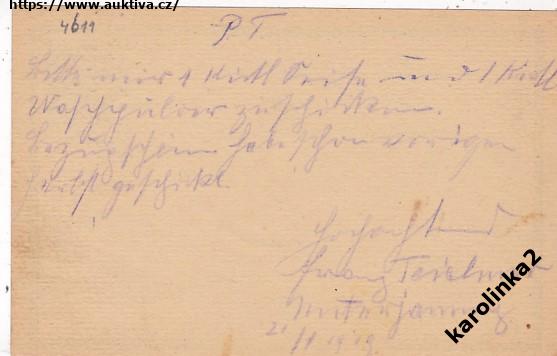 https://www.auktiva.cz/
4611
P.T.
Bitte mir 1 Kistl Seife und 1 Kistl
Waschpulver zuschicken.
Bezugschein habe schon vorigen
Herbst geschickt.
Hochachtend
Franz
21
II 1919
karolinka2